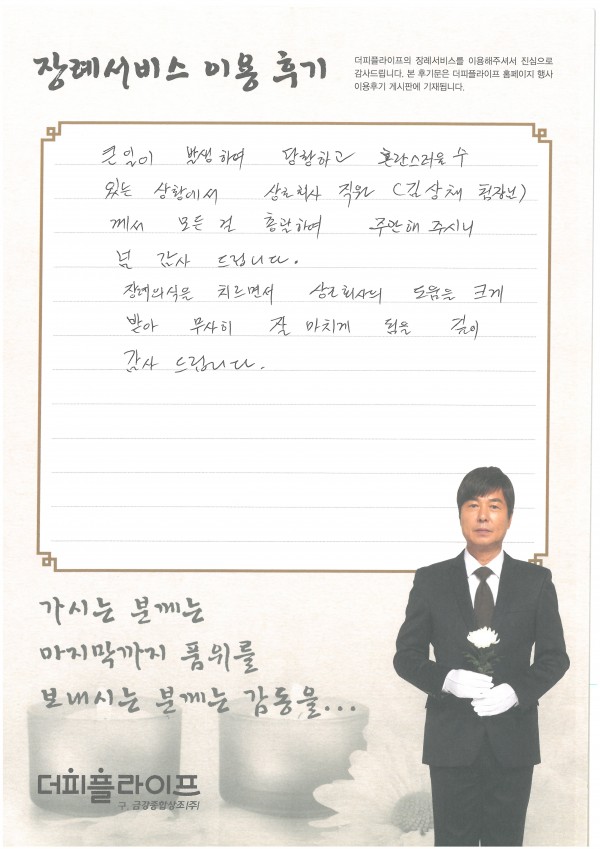 장례서비스 이용 후기
더피플라이프의 장례서비스를 이용해주셔서 진심으로
감사드립니다. 본 후기문은 더피플라이프 홈페이지 행사
이용후기 게시판에 기재됩니다.
큰일이 발생하여 당황하고 혼란스러울 수
있는 상황에서 상조회사 직원 (김상채 팀장님)
께서 모든 걸 총괄하여 주안해 주시니
넘 감사 드립니다.
장례의식을 치르면서 상조회사의 도움을 크게
받아 무사히 잘 마치게 됨을 깊이
감사 드립니다.
가시는 분께는
마지막까지 품위를
보내시는 분께는 감동을...
더피플라이프
구. 금강종합상조(주)